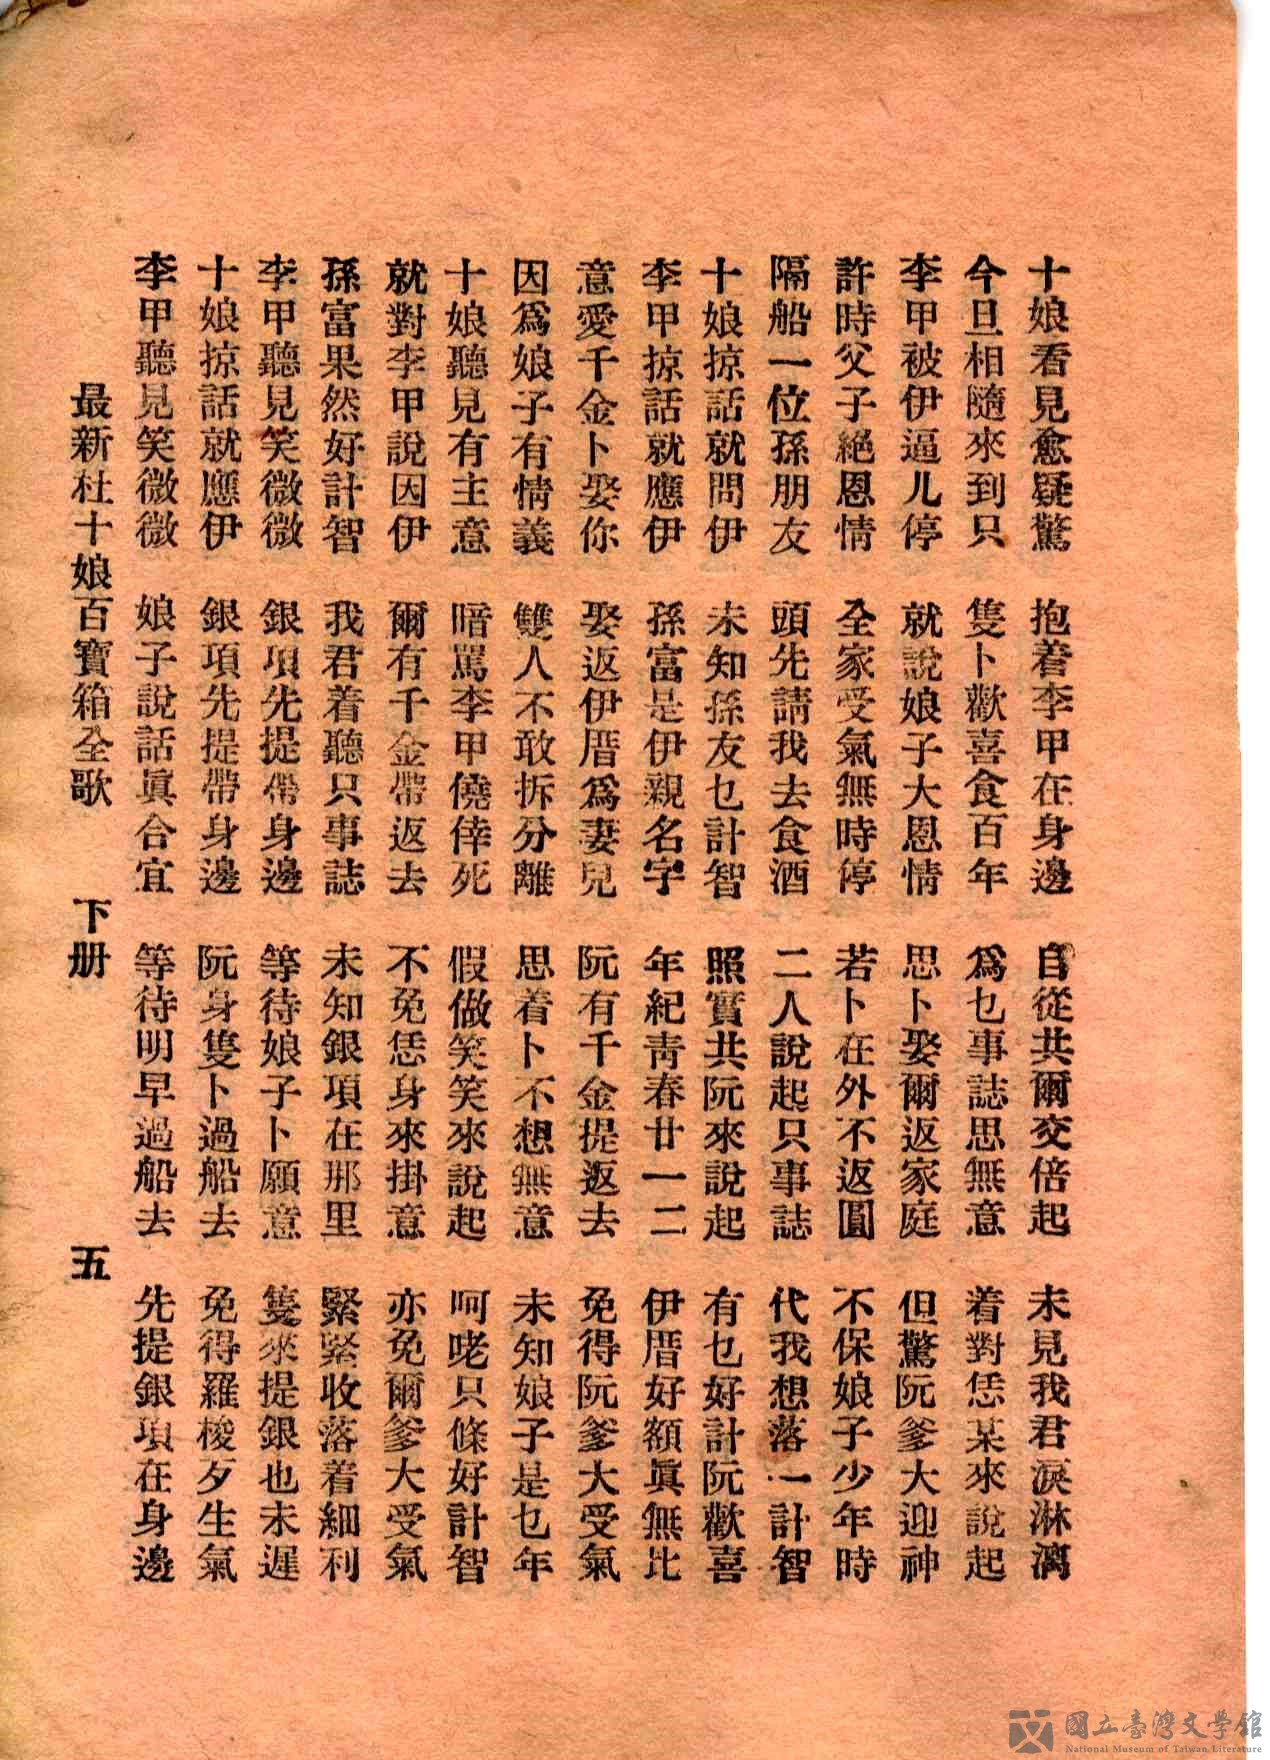 十娘看見愈疑驚　抱着李甲在身邊　自從共爾交倍起　未見我君淚淋漓
今旦相隨來到只　隻卜歡喜食百年　爲乜事誌思無意　着對恁某來說起
李甲被伊逼儿停　就說娘子大恩情　思卜娶爾返家庭　但驚阮爹大迎神
許時父子絕恩情　全家受氣無時停　若卜在外不返圓　不保娘子少年時
隔船一位孫朋友　頭先請我去食酒　二人說起只事誌　代我想落一計智
十娘掠話就問伊　未知孫友乜計智　照實共阮來說起　有乜好計阮歡喜
李甲掠話就應伊　孫富是伊親名字　年紀靑春廿一二　伊厝好額眞無比
意愛千金卜娶你　娶返伊厝爲妻兒　阮有千金提返去　免得阮爹大受氣
因爲娘子有情義　雙人不敢拆分離　思着卜不想無意　未知娘子是乜年
十娘聽見有主意　暗罵李甲僥倖死　假做笑笑來說起　呵咾只條好計智
就對李甲說因伊　爾有千金帶返去　不免恁身來掛意　亦免爾爹大受氣
孫富果然好計智　我君着聽只事誌　未知銀項在那里　緊緊收落着細利
李甲聽見笑微微　銀項先提帶身邊　等待娘子卜願意　隻來提銀也未遲
十娘掠話就應伊　銀項先提帶身邊　阮身隻卜過船去　免得羅梭歹生氣
李甲聽見笑微微　娘子說話眞合宜　等待明早過船去　先提銀項在身邊
最新杜十娘百寶箱全歌　下册　五
國立臺灣文學館
National Museum of Taiwan Literature